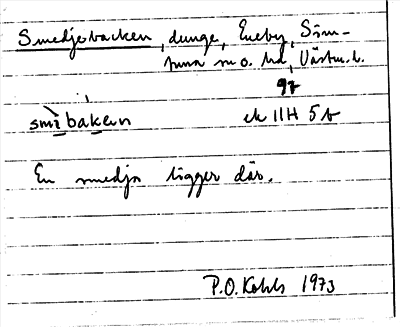 Smedjebacken, dunge, Eneby, Sim-
tuna sn o. hd, Västm. l.
97
smìbákern
ek 11H 5b
En smedja ligger där.
P.O. Kohls 1973